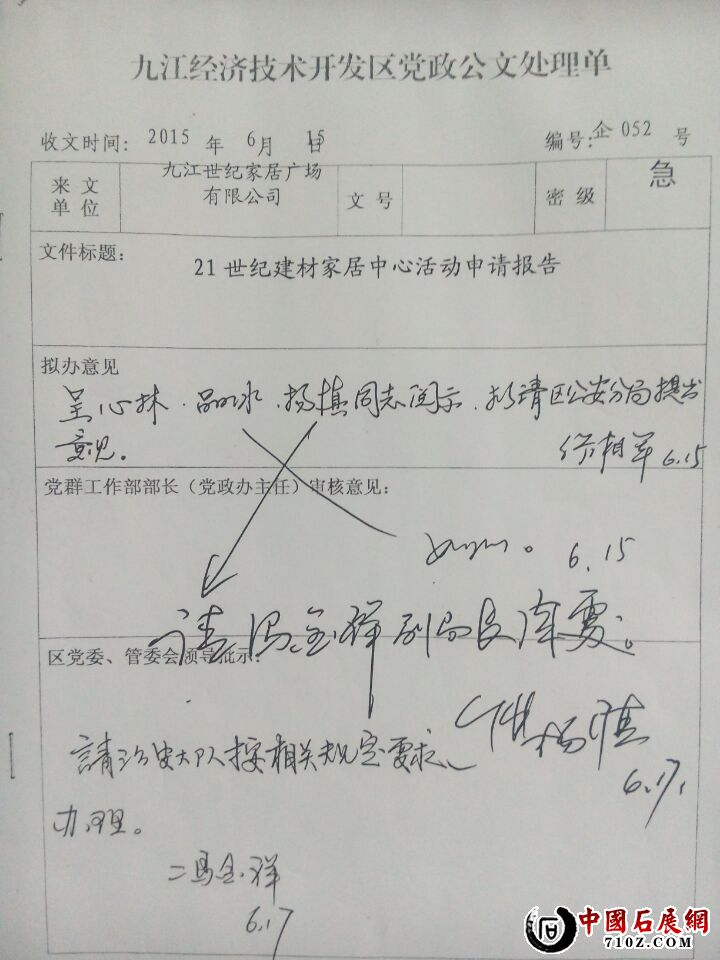 九江经济技术开发区党政公文处理单
收文时间: 2015 年 6月 15日 编号:企 052 号
来文单位 九江世纪家居广场有限公司 文号 密级 急
文件标题:
21世纪建材家居中心活动申请报告
拟办意见
呈心林、 杨槙同志阅示,拟请区公安分局提出
意见。
6.15
党群工作部部长(党政办主任)审核意见:
6.15
请冯金祥副局长阵处。
区党委、管委会领导批示:
杨槙
6.17.
請治安大队按相关规定要求
办理。
冯金祥
6.17
中國石展網
710Z.COM